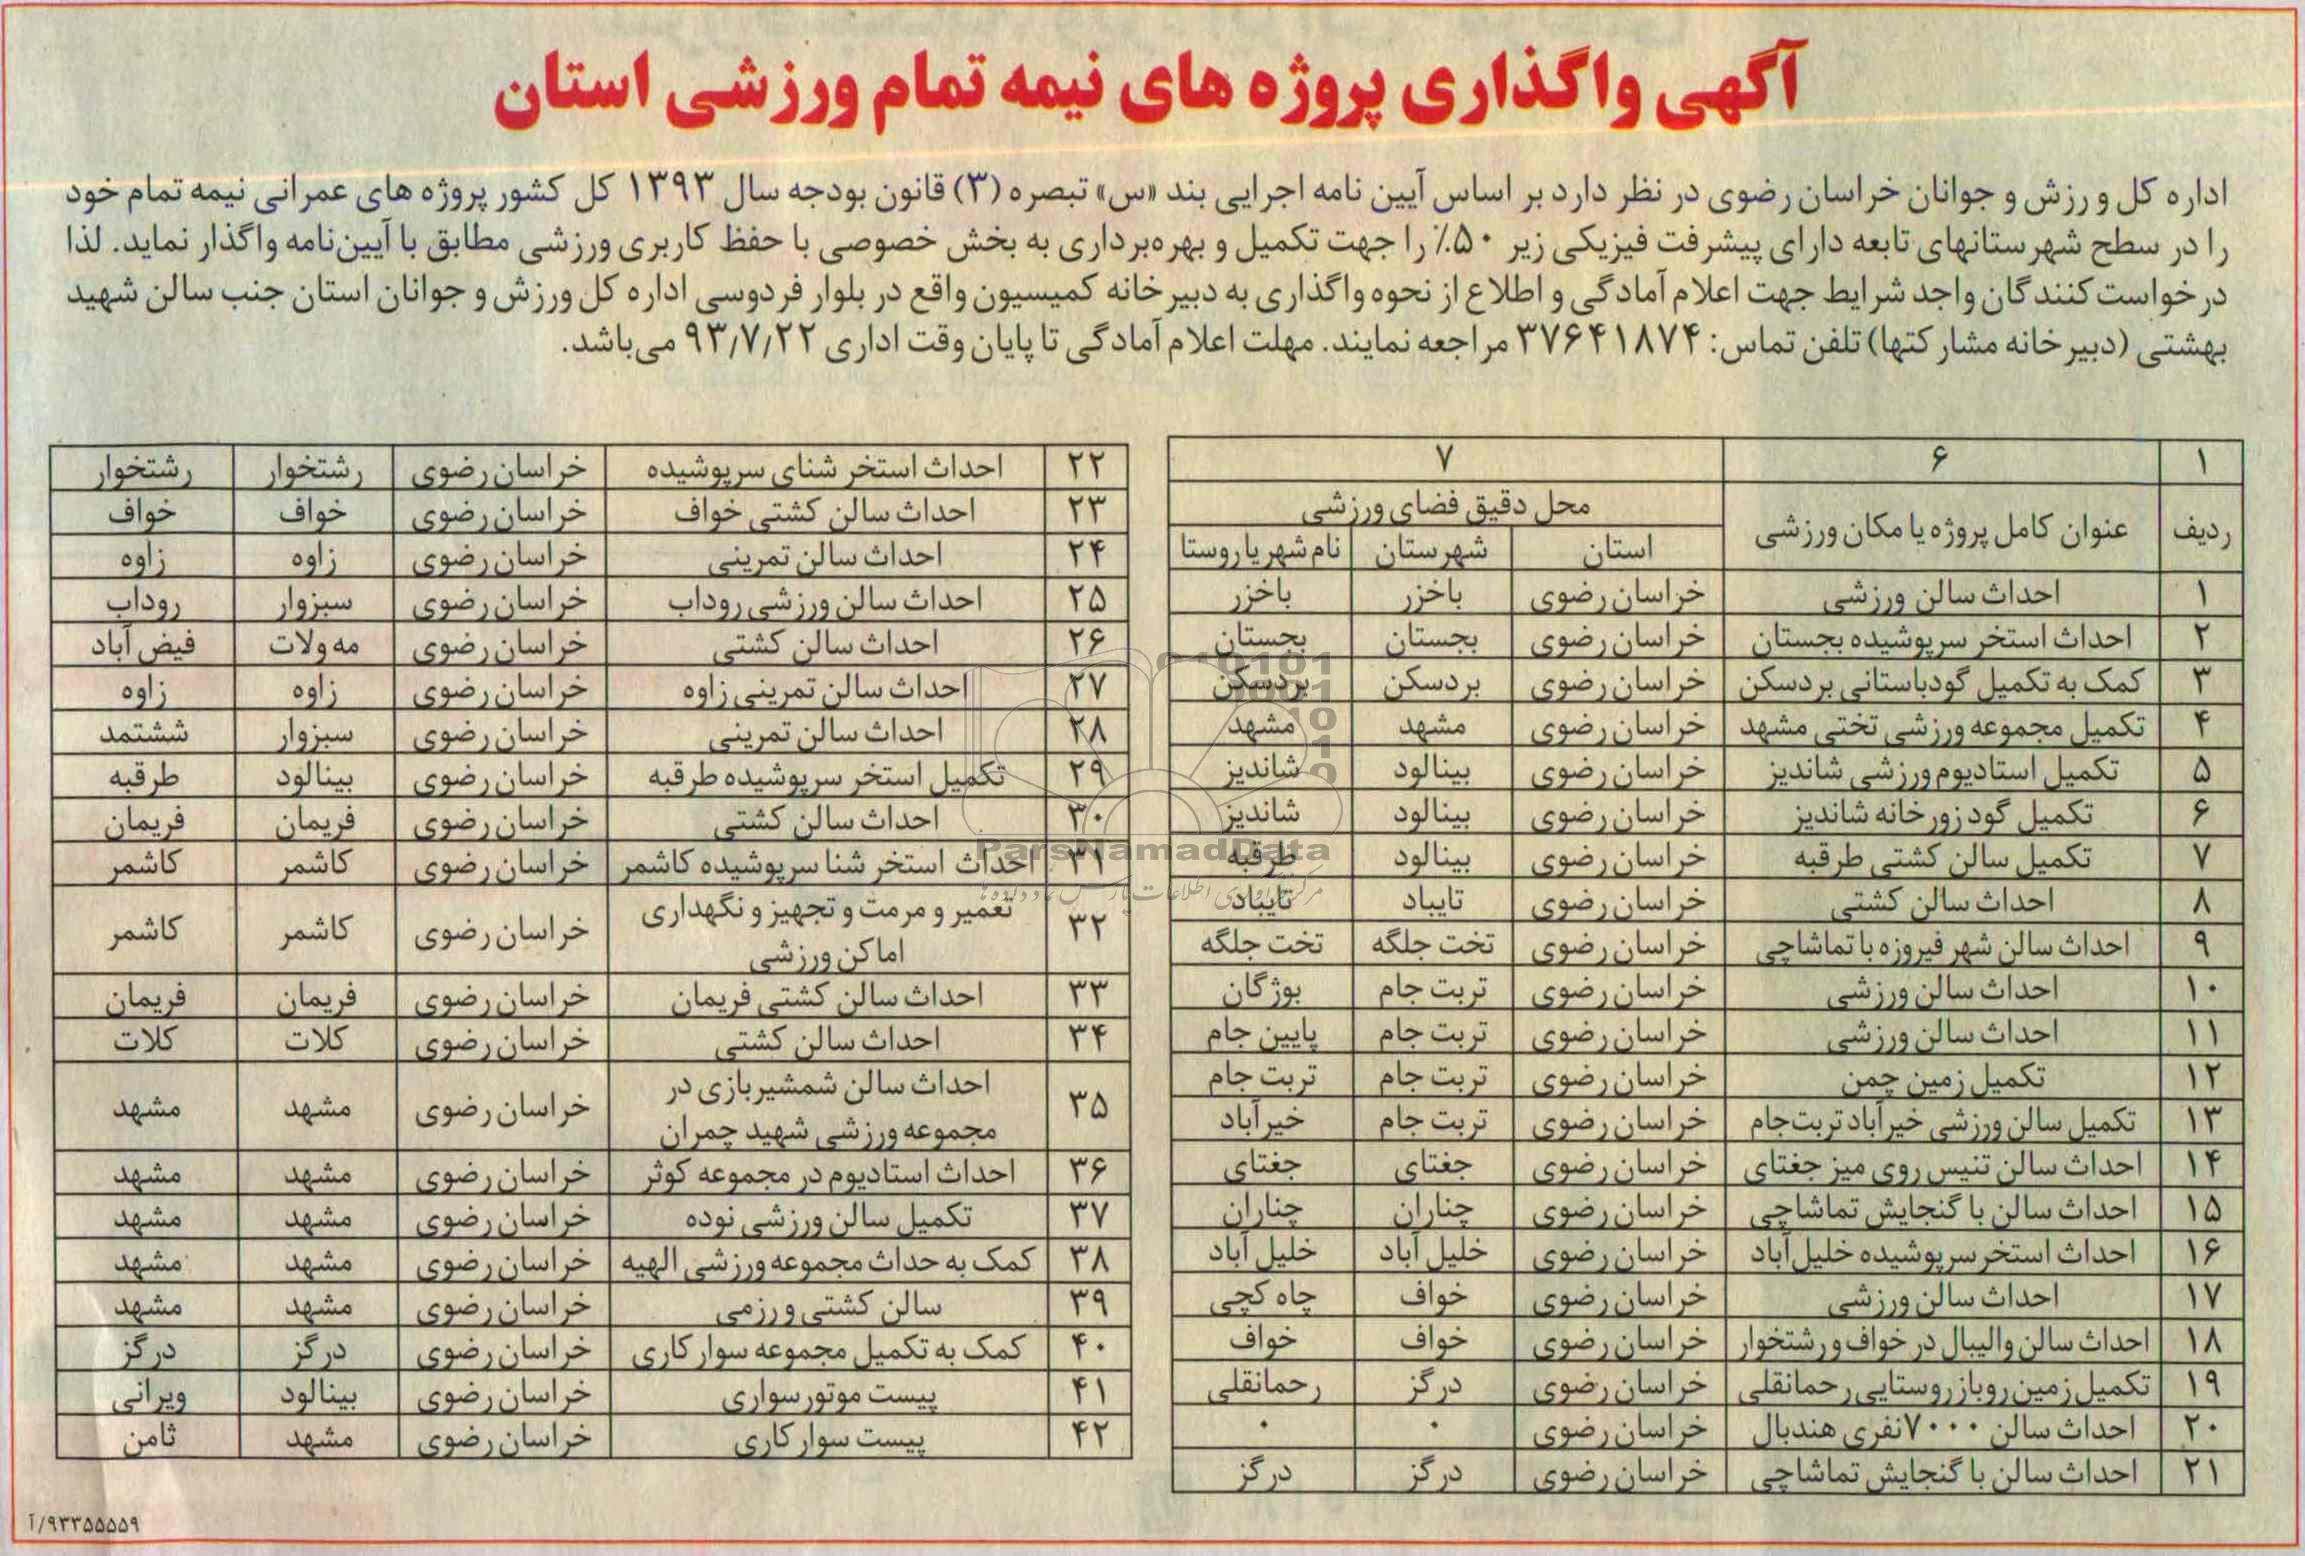 آگهی واگذاری پروژه های نیمه تمام ورزشی استان
اداره کل ورزش و جوانان خراسان رضوی در نظر دارد بر اساس آیین نامه اجرایی بند «س» تبصره (۳) قانون بودجه سال ۱۳۹۳ کل کشور پروژه های عمرانی نیمه تمام خود
را در سطح شهرستانهای تابعه دارای پیشرفت فیزیکی زیر ۵۰٪ را جهت تکمیل و بهره‌برداری به بخش خصوصی با حفظ کاربری ورزشی مطابق با آیین‌نامه واگذار نماید. لذا
درخواست کنندگان واجد شرایط جهت اعلام آمادگی و اطلاع از نحوه واگذاری به دبیرخانه کمیسیون واقع در بلوار فردوسی اداره کل ورزش و جوانان استان جنب سالن شهید
بهشتی (دبیرخانه مشارکتها) تلفن تماس: ۳۷۶۴۱۸۷۴ مراجعه نمایند. مهلت اعلام آمادگی تا پایان وقت اداری ۹۳/۷/۲۲ می‌باشد.
۱ ۶ ۷
ردیف عنوان کامل پروژه یا مکان ورزشی محل دقیق فضای ورزشی
استان شهرستان نام شهر یا روستا
۱ احداث سالن ورزشی خراسان رضوی باخزر باخزر
۲ احداث استخر سرپوشیده بجستان خراسان رضوی بجستان بجستان
۳ کمک به تکمیل گودباستانی بردسکن خراسان رضوی بردسکن بردسکن
۴ تکمیل مجموعه ورزشی تختی مشهد خراسان رضوی مشهد مشهد
۵ تکمیل استادیوم ورزشی شاندیز خراسان رضوی بینالود شاندیز
۶ تکمیل گود زورخانه شاندیز خراسان رضوی بینالود شاندیز
۷ تکمیل سالن کشتی طرقبه خراسان رضوی بینالود طرقبه
۸ احداث سالن کشتی خراسان رضوی تایباد تایباد
۹ احداث سالن شهر فیروزه با تماشاچی خراسان رضوی تخت جلگه تخت جلگه
۱۰ احداث سالن ورزشی خراسان رضوی تربت جام بوژگان
۱۱ احداث سالن ورزشی خراسان رضوی تربت جام پایین جام
۱۲ تکمیل زمین چمن خراسان رضوی تربت جام تربت جام
۱۳ تکمیل سالن ورزشی خیرآباد تربت‌جام خراسان رضوی تربت جام خیرآباد
۱۴ احداث سالن تنیس روی میز جغتای خراسان رضوی جغتای جغتای
۱۵ احداث سالن با گنجایش تماشاچی خراسان رضوی چناران چناران
۱۶ احداث استخر سرپوشیده خلیل‌آباد خراسان رضوی خلیل آباد خلیل آباد
۱۷ احداث سالن ورزشی خراسان رضوی خواف چاه کچی
۱۸ احداث سالن والیبال در خواف و رشتخوار خراسان رضوی خواف خواف
۱۹ تکمیل زمین روباز روستایی رحمانقلی خراسان رضوی درگز رحمانقلی
۲۰ احداث سالن ۷۰۰۰ نفری هندبال خراسان رضوی ۰ ۰
۲۱ احداث سالن با گنجایش تماشاچی خراسان رضوی درگز درگز
۲۲ احداث استخر شنای سرپوشیده خراسان رضوی رشتخوار رشتخوار
۲۳ احداث سالن کشتی خواف خراسان رضوی خواف خواف
۲۴ احداث سالن تمرینی خراسان رضوی زاوه زاوه
۲۵ احداث سالن ورزشی روداب خراسان رضوی سبزوار روداب
۲۶ احداث سالن کشتی خراسان رضوی مه ولات فیض آباد
۲۷ احداث سالن تمرینی زاوه خراسان رضوی زاوه زاوه
۲۸ احداث سالن تمرینی خراسان رضوی سبزوار ششتمد
۲۹ تکمیل استخر سرپوشیده طرقبه خراسان رضوی بینالود طرقبه
۳۰ احداث سالن کشتی خراسان رضوی فریمان فریمان
۳۱ احداث استخر شنا سرپوشیده کاشمر خراسان رضوی کاشمر کاشمر
۳۲ تعمیر و مرمت و تجهیز و نگهداری
اماکن ورزشی خراسان رضوی کاشمر کاشمر
۳۳ احداث سالن کشتی فریمان خراسان رضوی فریمان فریمان
۳۴ احداث سالن کشتی خراسان رضوی کلات کلات
۳۵ احداث سالن شمشیربازی در
مجموعه ورزشی شهید چمران خراسان رضوی مشهد مشهد
۳۶ احداث استادیوم در مجموعه کوثر خراسان رضوی مشهد مشهد
۳۷ تکمیل سالن ورزشی نوده خراسان رضوی مشهد مشهد
۳۸ کمک به حداث مجموعه ورزشی الهیه خراسان رضوی مشهد مشهد
۳۹ سالن کشتی و رزمی خراسان رضوی مشهد مشهد
۴۰ کمک به تکمیل مجموعه سوارکاری خراسان رضوی درگز درگز
۴۱ پیست موتورسواری خراسان رضوی بینالود ویرانی
۴۲ پیست سوارکاری خراسان رضوی مشهد ثامن
ParsNamadData
۹۳۳۵۵۵۵۹/آ